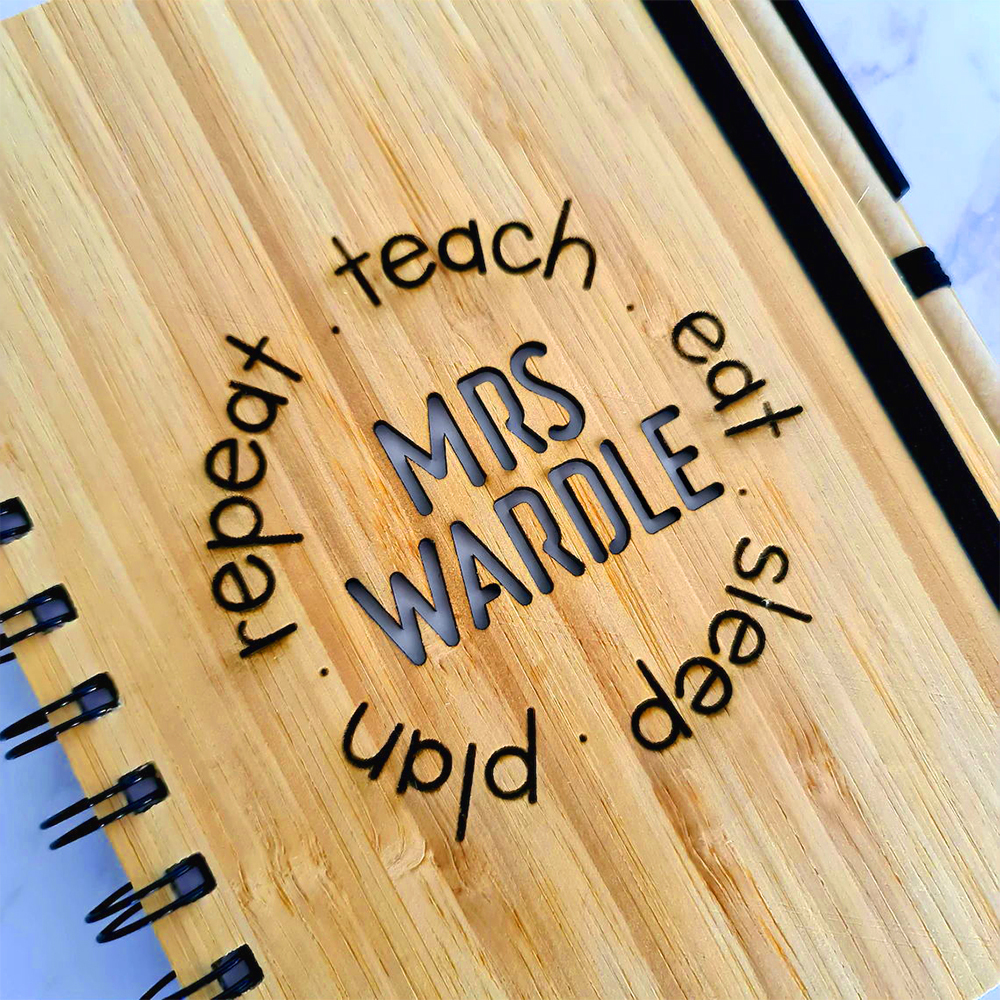 teach · eat · sleep · plan · repeat ·
MRS
WARDLE